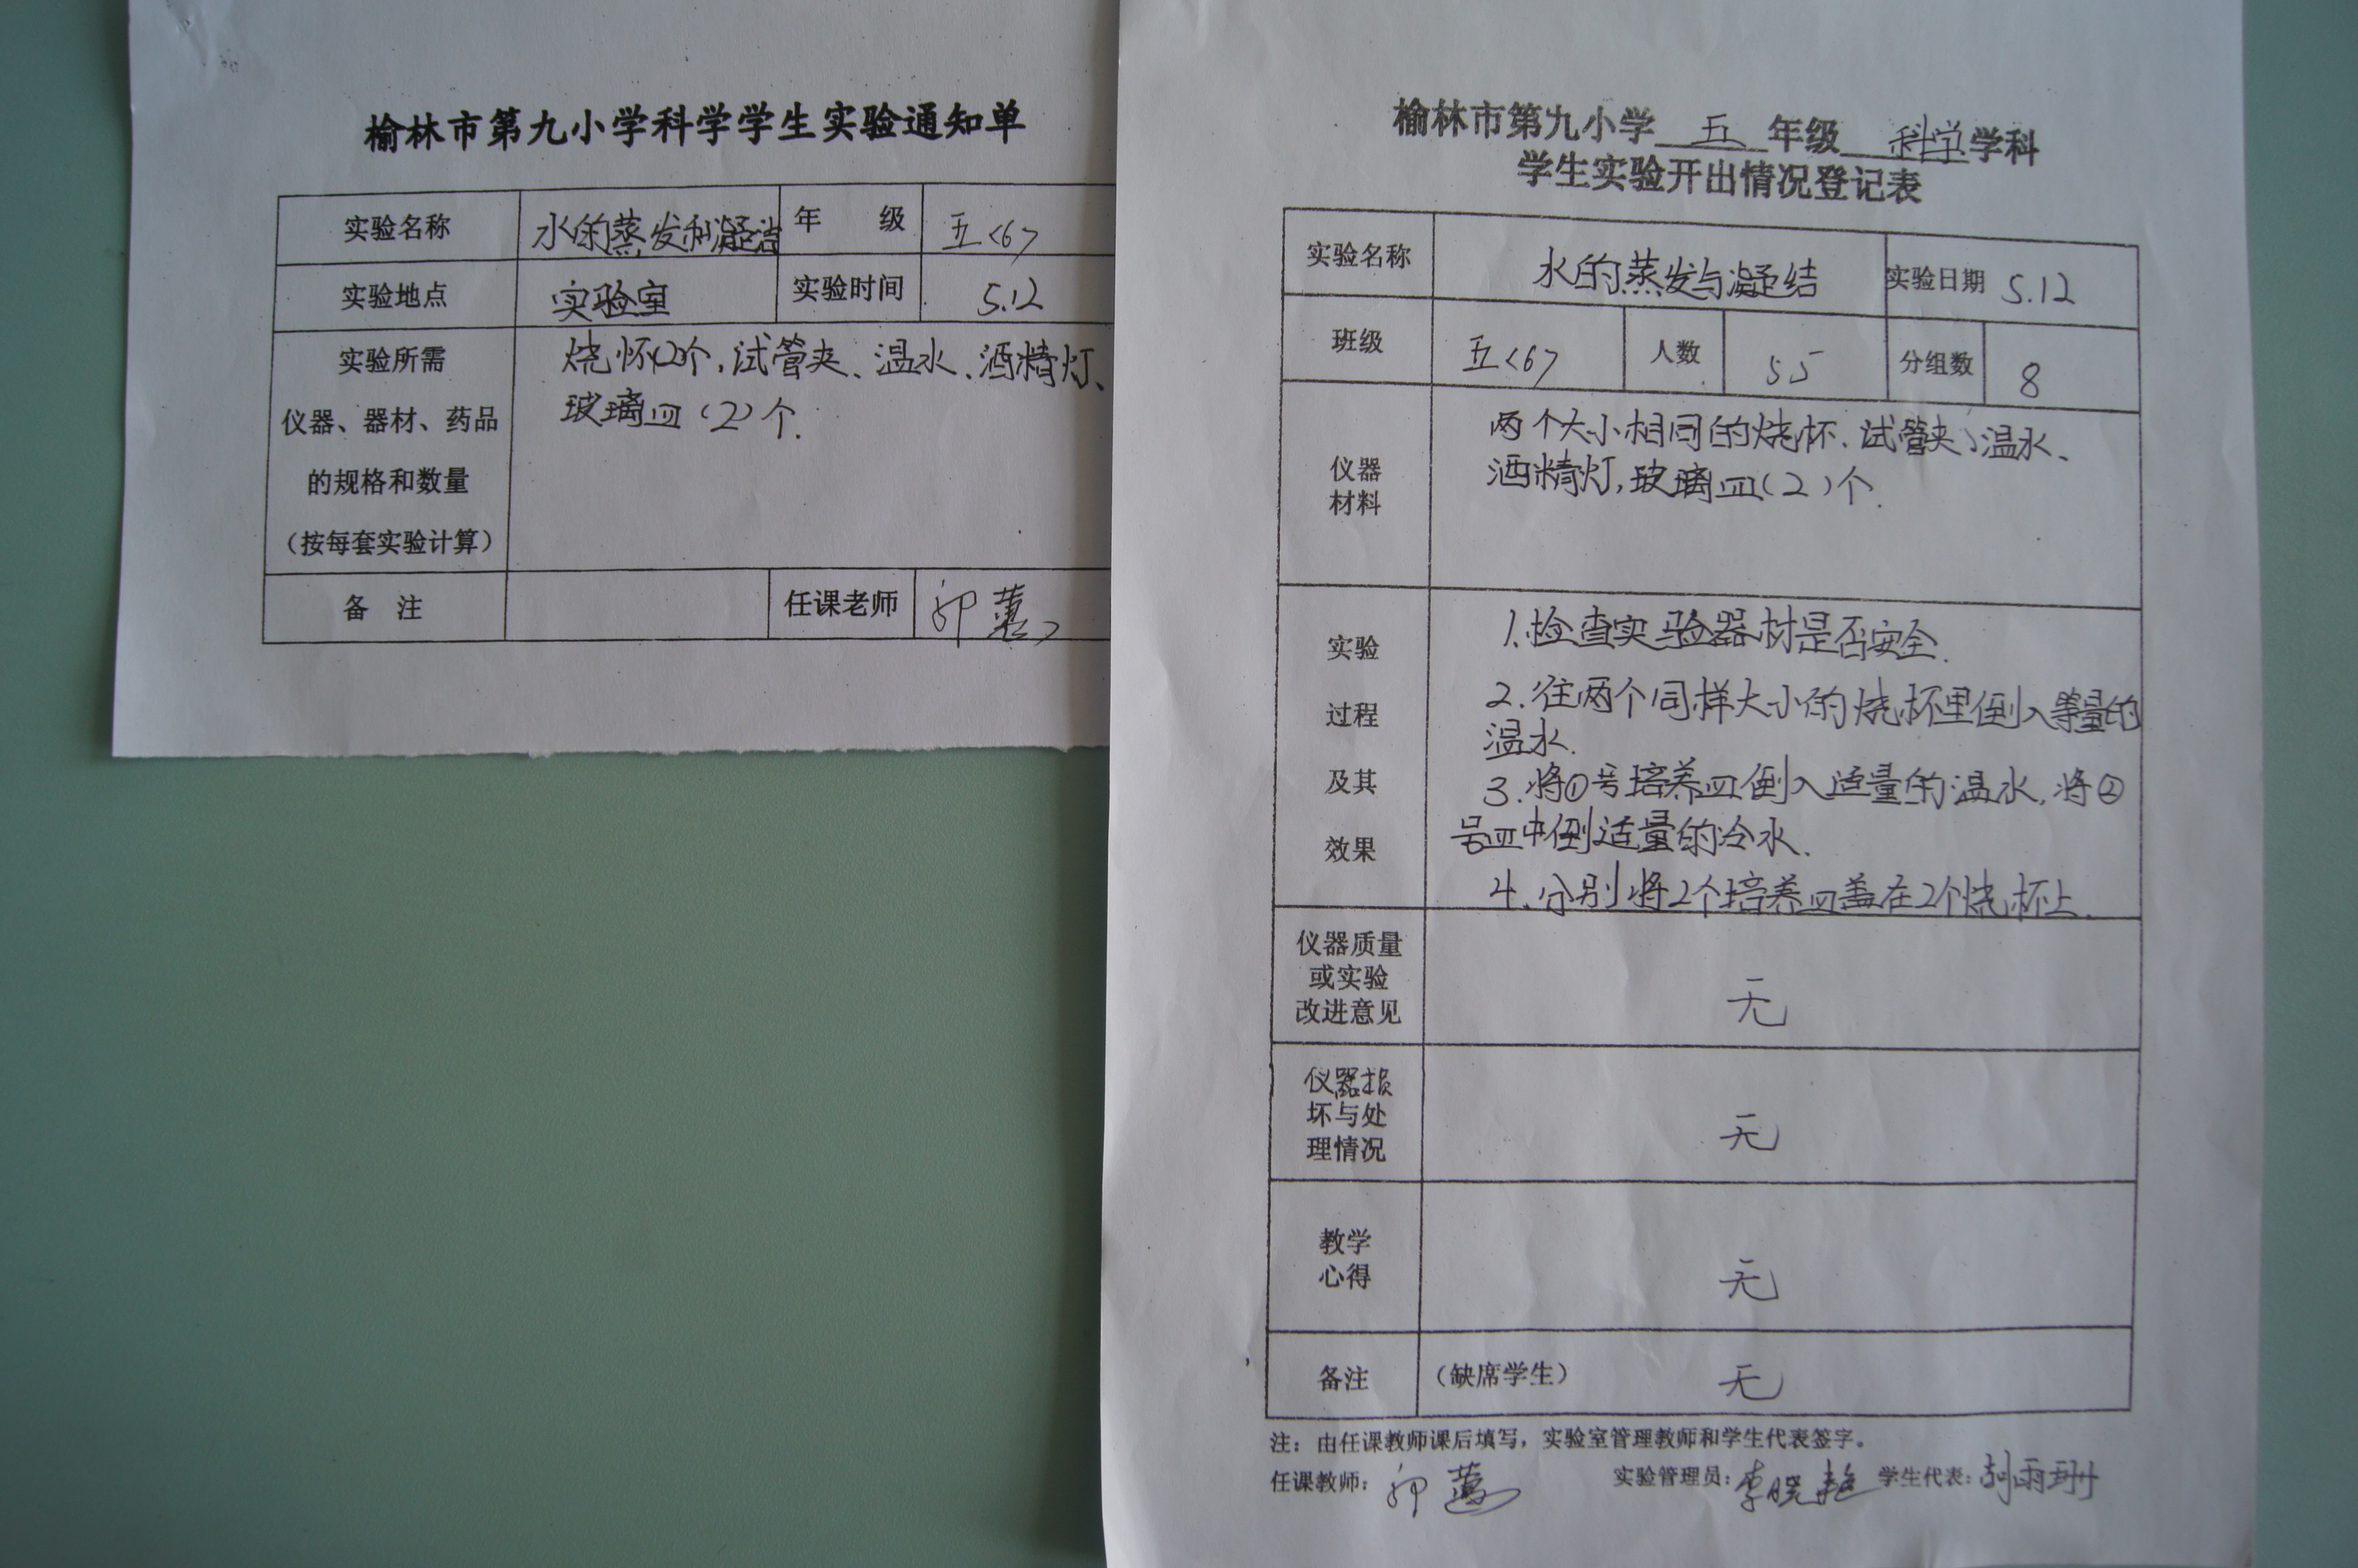 榆林市第九小学科学学生实验通知单
实验名称 水的蒸发和凝结 年 级 五<6>
实验地点 实验室 实验时间 5.12
实验所需
仪器、器材、药品
的规格和数量
（按每套实验计算）
烧怀(2)个,试管夹、温水、酒精灯、
玻璃皿(2)个.
备 注 任课老师
榆林市第九小学 五 年级 科学 学科
学生实验开出情况登记表
实验名称 水的蒸发与凝结 实验日期 5.12
班级 五<6> 人数 55 分组数 8
仪器
材料
两个大小相同的烧杯、试管夹、温水、
酒精灯,玻璃皿(2)个.
实验
过程
及其
效果
1.检查实验器材是否安全.
2.往两个同样大小的烧杯里倒入等量的
温水.
3.将①号培养皿倒入适量的温水,将②
号皿中倒适量的冷水.
4.分别将2个培养皿盖在2个烧杯上.
仪器质量
或实验
改进意见
无
仪器损
坏与处
理情况
无
教学
心得
无
备注 （缺席学生） 无
注：由任课教师课后填写，实验室管理教师和学生代表签字。
任课教师： 实验管理员：李晓艳 学生代表：